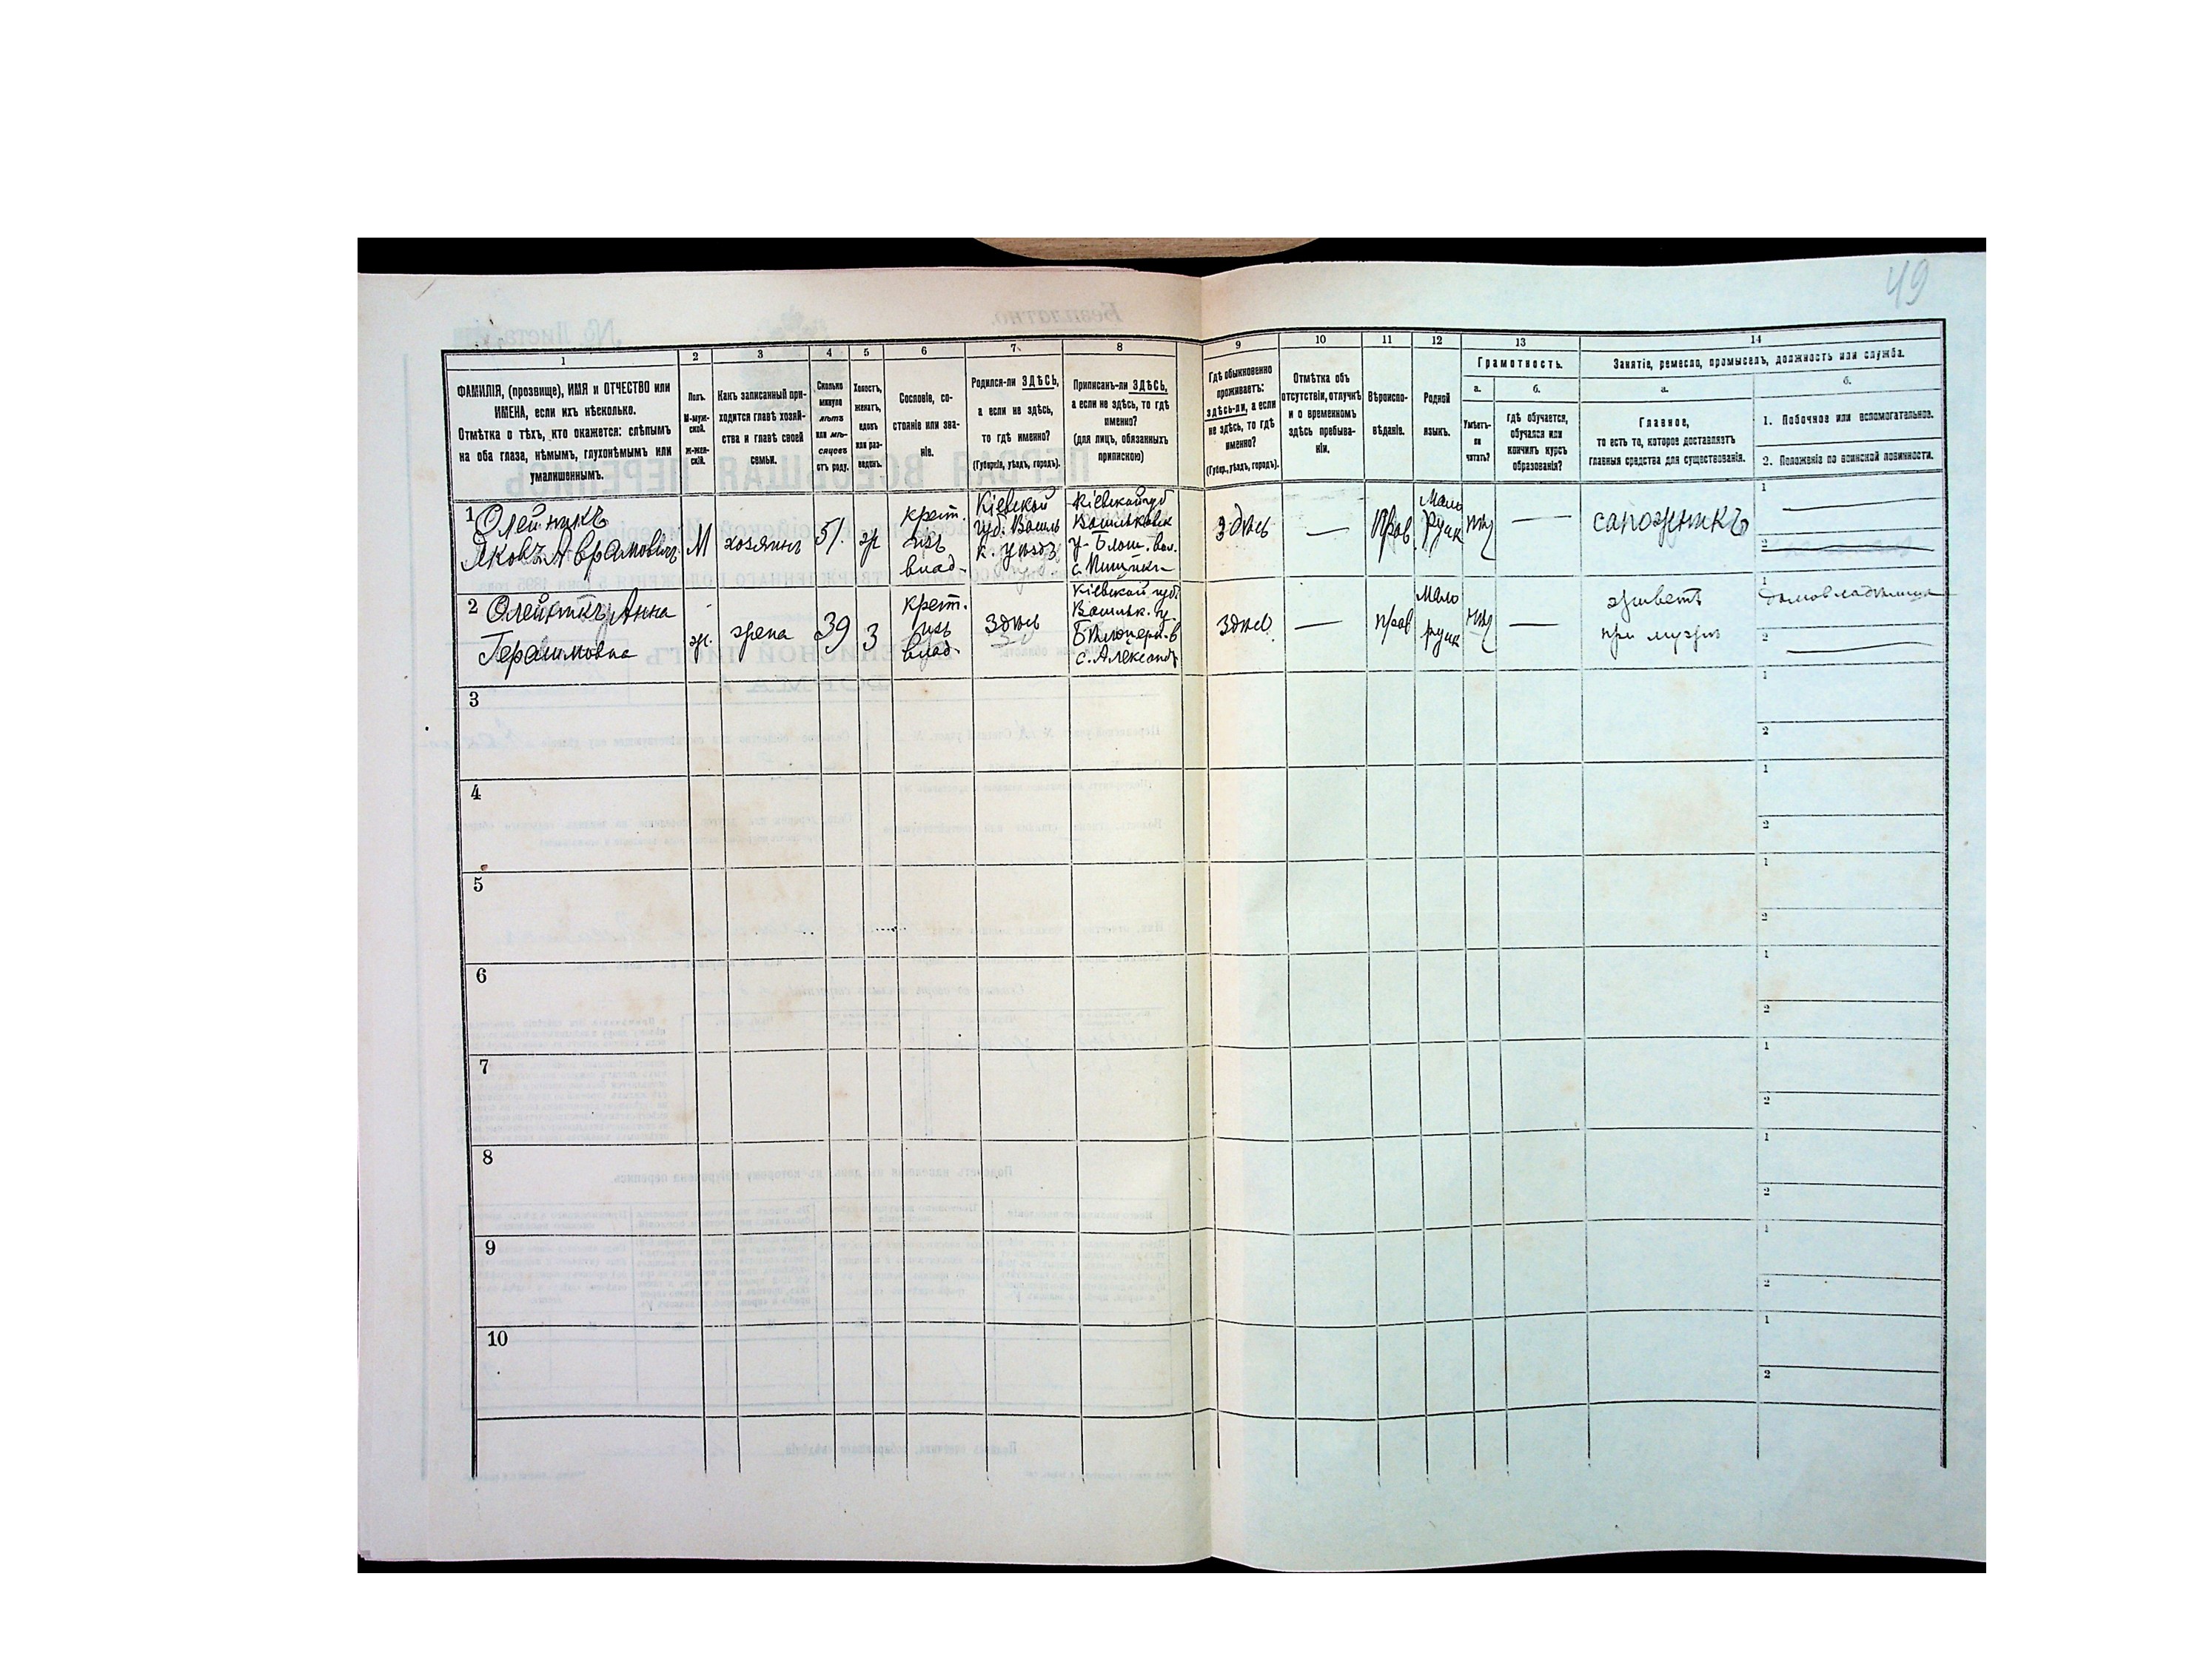 49
1
2
3
4
5
6
7
8
9
10
11
12
13
14
ФАМИЛІЯ, (прозвище), ИМЯ и ОТЧЕСТВО или
ИМЕНА, если ихъ нѣсколько.
Отмѣтка о тѣхъ, кто окажется: слѣпымъ
на оба глаза, нѣмымъ, глухонѣмымъ или
умалишеннымъ.
Полъ.
М-муж-
ской.
Ж-жен-
скій.
Какъ записанный при-
ходится главѣ хозяй-
ства и главѣ своей
семьи.
Сколько
минуло
лѣтъ
или мѣ-
сяцевъ
отъ роду.
Холостъ,
женатъ,
вдовъ
или раз-
веденъ.
Сословіе, со-
стояніе или зва-
ніе.
Родился-ли ЗДѢСЬ,
а если не здѣсь,
то гдѣ именно?
(Губернія, уѣздъ, городъ).
Приписанъ-ли ЗДѢСЬ,
а если не здѣсь, то гдѣ
именно?
(для лицъ, обязанныхъ
припискою)
Гдѣ обыкновенно
проживаетъ:
здѣсь-ли, а если
не здѣсь, то гдѣ
именно?
(Губер., уѣздъ, городъ).
Отмѣтка объ
отсутствіи, отлучкѣ
и о временномъ
здѣсь пребыва-
ніи.
Вѣроиспо-
вѣданіе.
Родной
языкъ.
Грамотность.
а.
Умѣетъ-
ли
читать?
б.
гдѣ обучается,
обучался или
кончилъ курсъ
образованія?
Занятіе, ремесло, промыселъ, должность или служба.
а.
Главное,
то есть то, которое доставляетъ
главныя средства для существованія.
б.
1. Побочное или вспомогательное.
2. Положеніе по воинской повинности.
1 Олейникъ
Яковъ Аврамовичъ
М
хозяинъ
51.
ж
крест.
изъ
влад.
Кіевской
губ. Васильк. уѣзд.
Кіевской губ
Васильковск
у.
здѣсь
—
Прав
Мало
русск
нѣт
—
сапожникъ
1
2
2 Олейникъ Анна
Герасимовна
ж.
жена
39
З
крест.
изъ
влад.
здѣсь
Кіевской губ
Васильк. у
с. Александр
здѣсь
—
прав
Мало
русск
нѣт
—
живетъ
при мужѣ
1
домовладѣлица
2
3
1
2
4
1
2
5
1
2
6
1
2
7
1
2
8
1
2
9
1
2
10
1
2